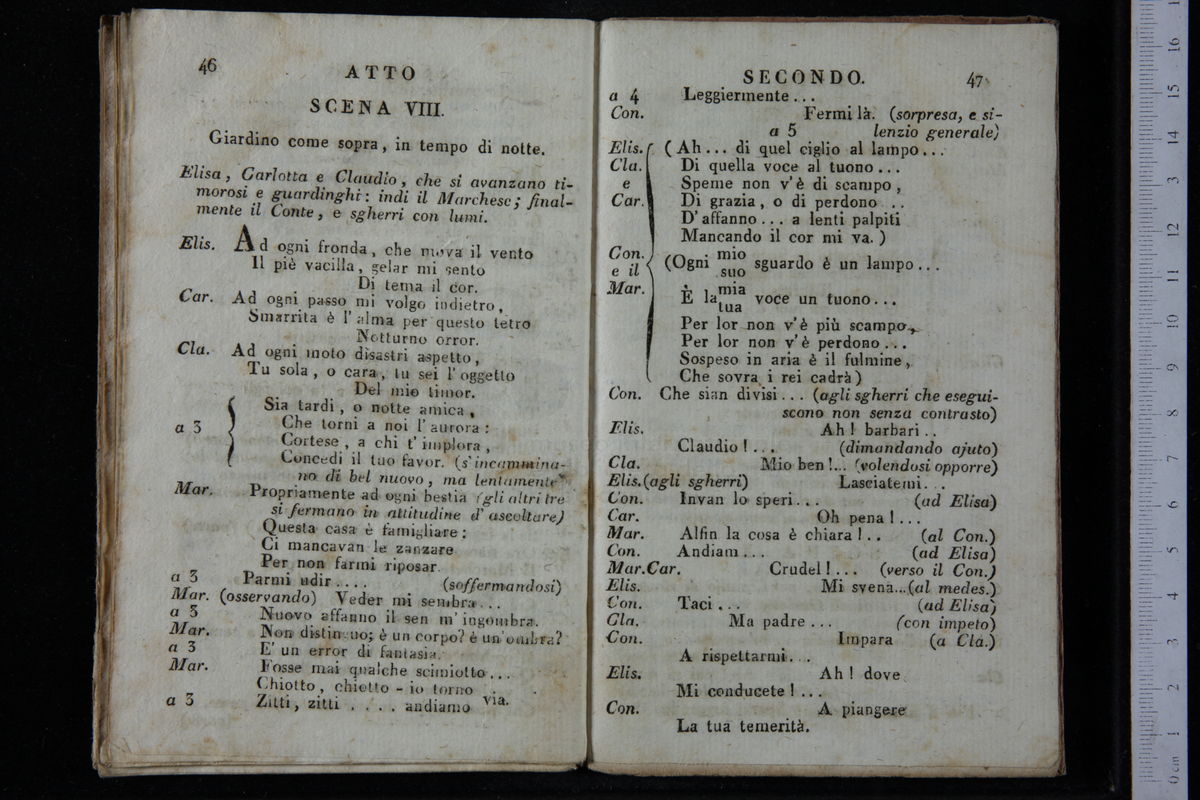 46
ATTO
SCENA VIII.
Giardino come sopra, in tempo di notte.
Elisa, Carlotta e Claudio, che si avanzano ti-
morosi e guardinghi: indi il Marchese; final-
mente il Conte, e sgherri con lumi.
Elis. Ad ogni fronda, che mova il vento
Il piè vacilla, gelar mi sento
Di tema il cor.
Car. Ad ogni passo mi volgo indietro,
Smarrita è l'alma per questo tetro
Notturno orror.
Cla. Ad ogni moto disastri aspetto,
Tu sola, o cara, tu sei l'oggetto
Del mio timor.
Sia tardi, o notte amica,
a 3 Che torni a noi l'aurora:
Cortese, a chi t'implora,
Concedi il tuo favor. (s'incammina-
no di bel nuovo, ma lentamente
Mar. Propriamente ad ogni bestia (gli altri tre
si fermano in attitudine d'ascoltare)
Questa casa è famigliare:
Ci mancavan le zanzare
Per non farmi riposar.
a 3 Parmi udir.... (soffermandosi)
Mar. (osservando) Veder mi sembra...
a 3 Nuovo affanno il sen m'ingombra.
Mar. Non distinguo; è un corpo? è un'ombra?
a 3 E' un error di fantasia.
Mar. Fosse mai qualche scimiotto...
Chiotto, chiotto - io torno
a 3 Zitti, zitti .... andiamo via.
SECONDO. 47
a 4 Leggiermente...
Con. Fermi là. (sorpresa, e si-
a 5 lenzio generale)
Elis. (Ah... di quel ciglio al lampo...
Cla. Di quella voce al tuono...
e Speme non v'è di scampo,
Car. Di grazia, o di perdono ..
D'affanno... a lenti palpiti
Mancando il cor mi va.)
Con. mio
e il (Ogni suo sguardo è un lampo...
Mar. mia
È la tua voce un tuono...
Per lor non v'è più scampo,
Per lor non v'è perdono...
Sospeso in aria è il fulmine,
Che sovra i rei cadrà)
Con. Che sian divisi... (agli sgherri che esegui-
scono non senza contrasto)
Elis. Ah! barbari..
Claudio!... (dimandando ajuto)
Cla. Mio ben!... (volendosi opporre)
Elis. (agli sgherri) Lasciatemi...
Con. Invan lo speri... (ad Elisa)
Car. Oh pena!...
Mar. Alfin la cosa è chiara!.. (al Con.)
Con. Andiam... (ad Elisa)
Mar. Car. Crudel!... (verso il Con.)
Elis. Mi svena...(al medes.)
Con. Taci... (ad Elisa)
Cla. Ma padre... (con impeto)
Con. Impara (a Cla.)
A rispettarmi...
Elis. Ah! dove
Mi conducete!...
Con. A piangere
La tua temerità.
0 cm 1 2 3 4 5 6 7 8 9 10 11 12 13 14 15 16